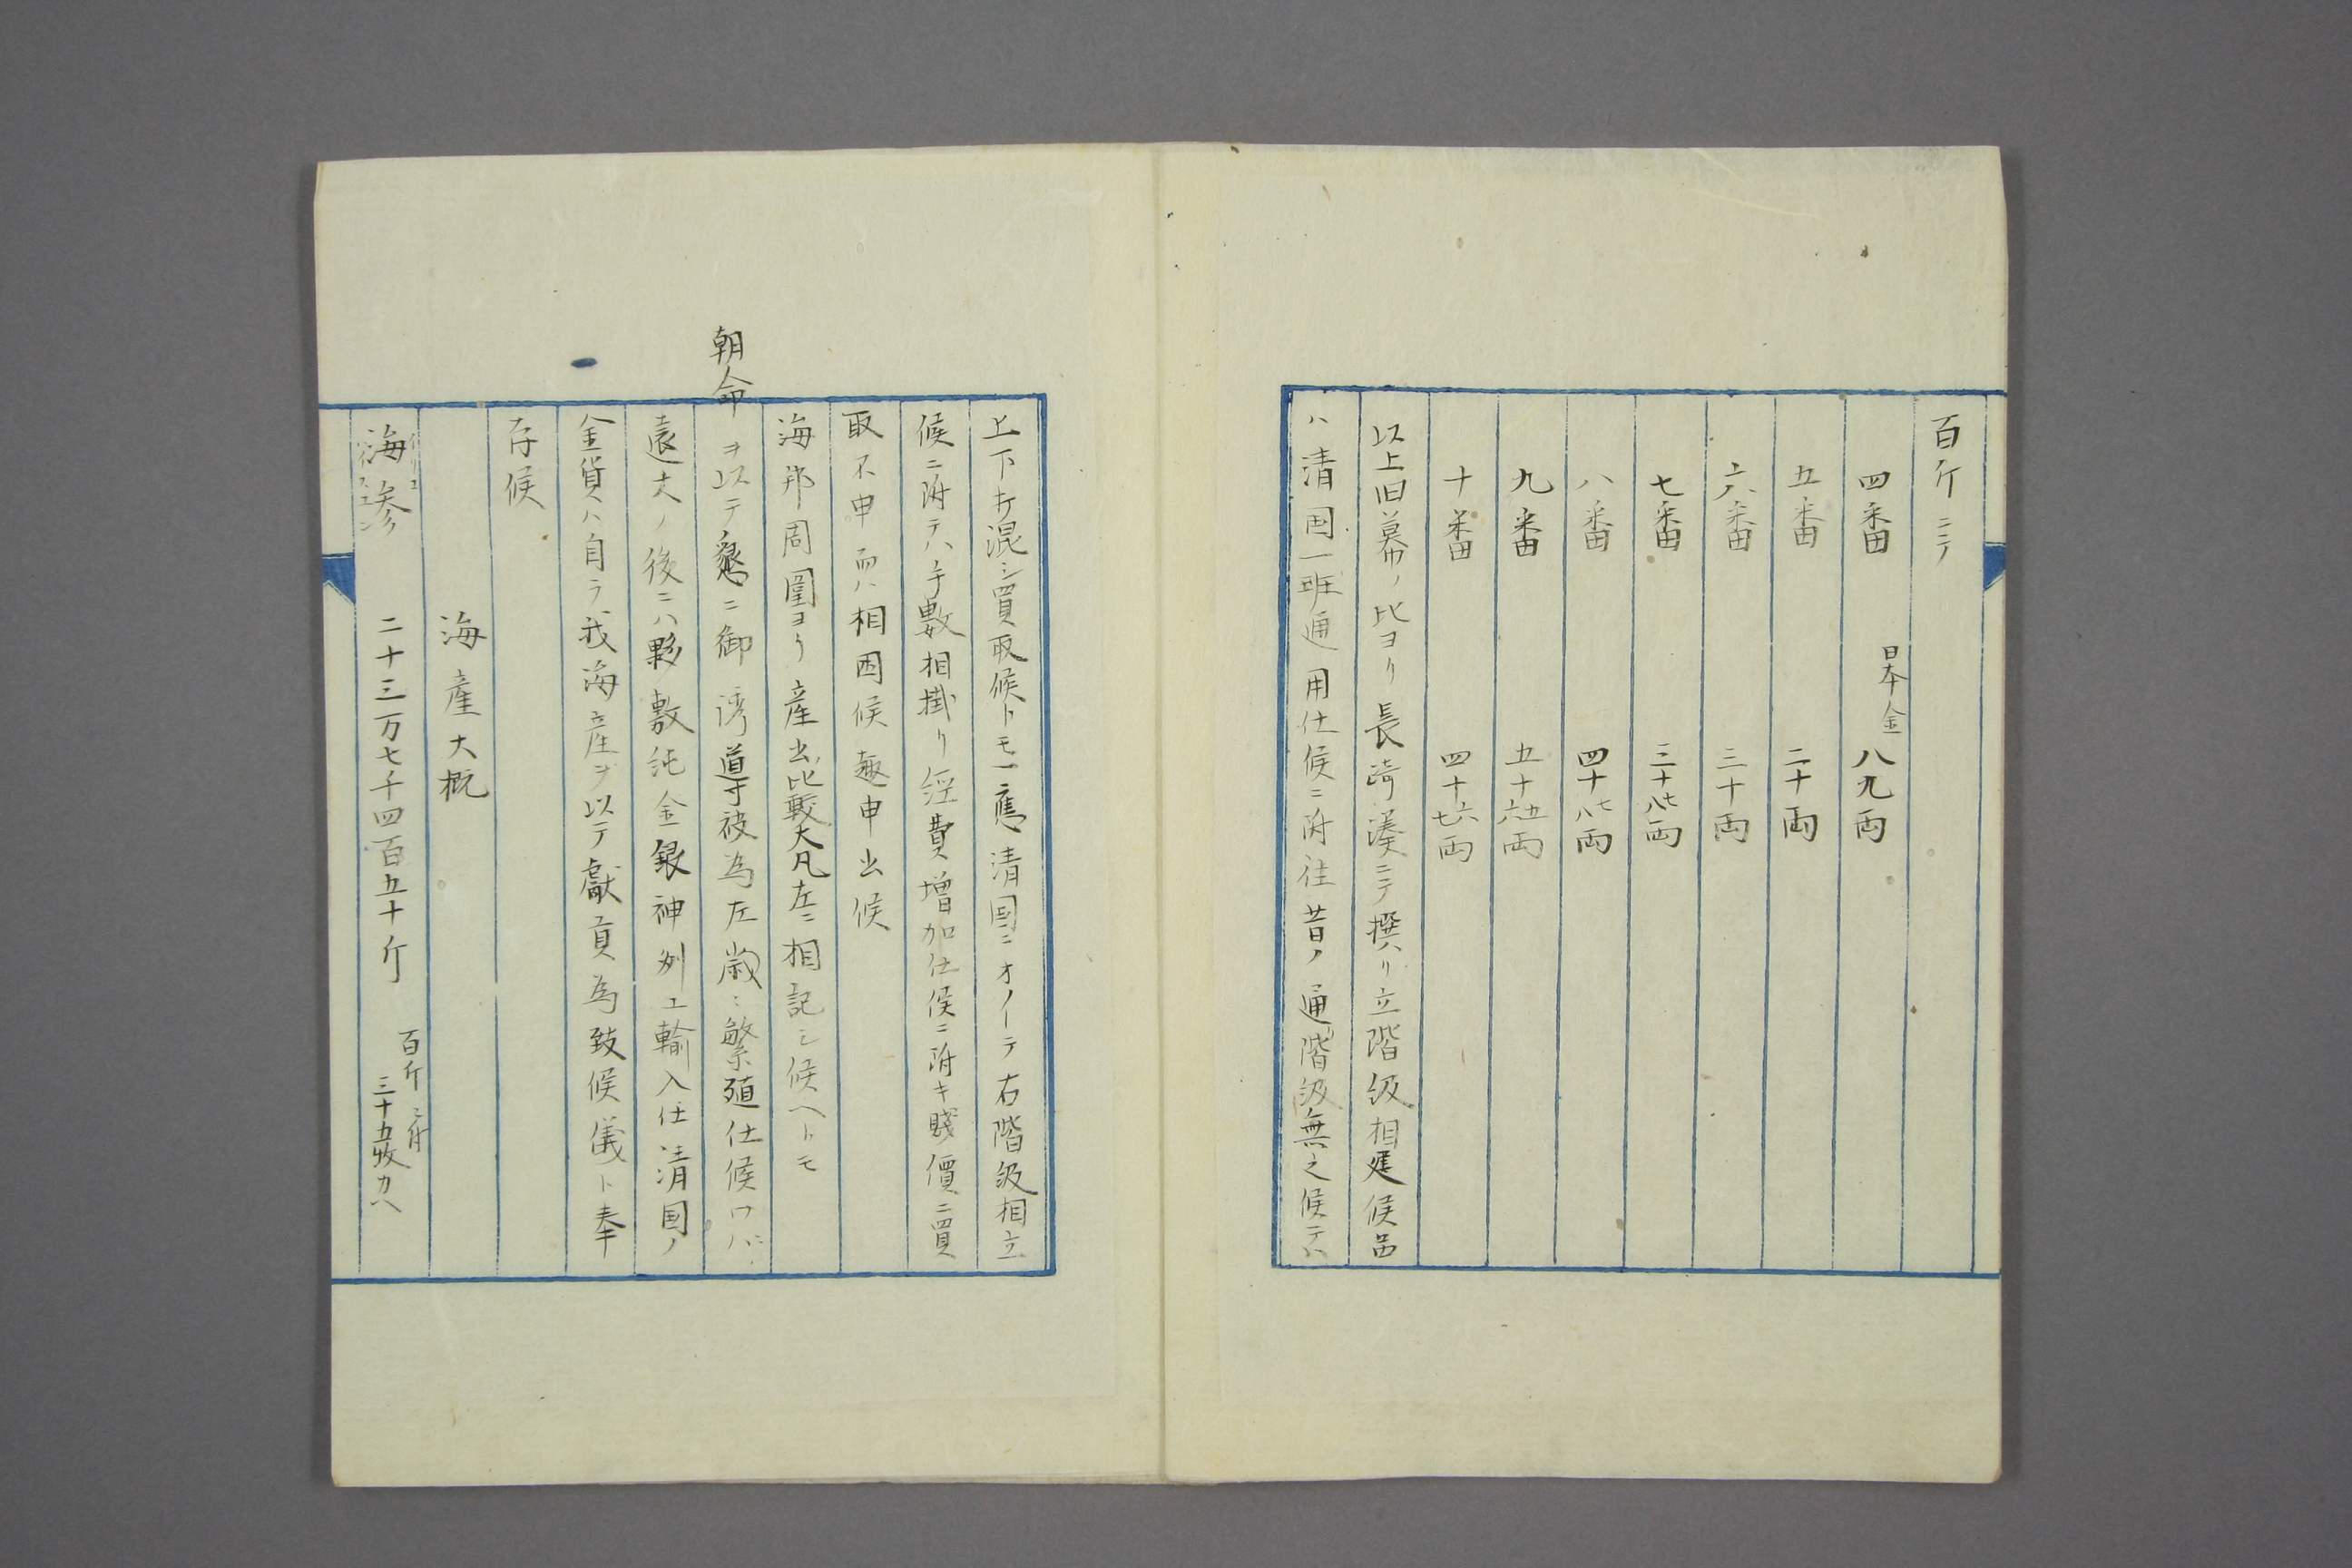 百斤ニテ
四番 日本金 八九両
五番 二十両
六番 三十両
七番 三十七八両
八番 四十七八両
九番 五十五六両
十番 四十六七両
以上旧幕ノ比ヨリ長崎湊ニテ撰ハリ立階級相建候品
ハ清国一班通用仕候ニ附往昔ノ通階級無之候テハ
上下打混シ買取候トモ一應清国ニオイテ右階級相立
候ニ附テハ手數相掛リ経費増加仕候ニ附キ賤價ニ買
取不申而ハ相困候趣申出候
海邦周圍ヨリ産出比較大凡左ニ相記シ候ヘトモ
朝命ヲ以テ懇ニ御誘導被為在歳〻繁殖仕候ワハ
遠大ノ後ニハ夥敷純金銀神州エ輸入仕清国ノ
金貨ハ自ラ我海産ヲ以テ獻貢為致候儀ト奉
存候
海産大概
海参 二十三万七千四百五十斤 百斤ニ付 三十五枚カヘ